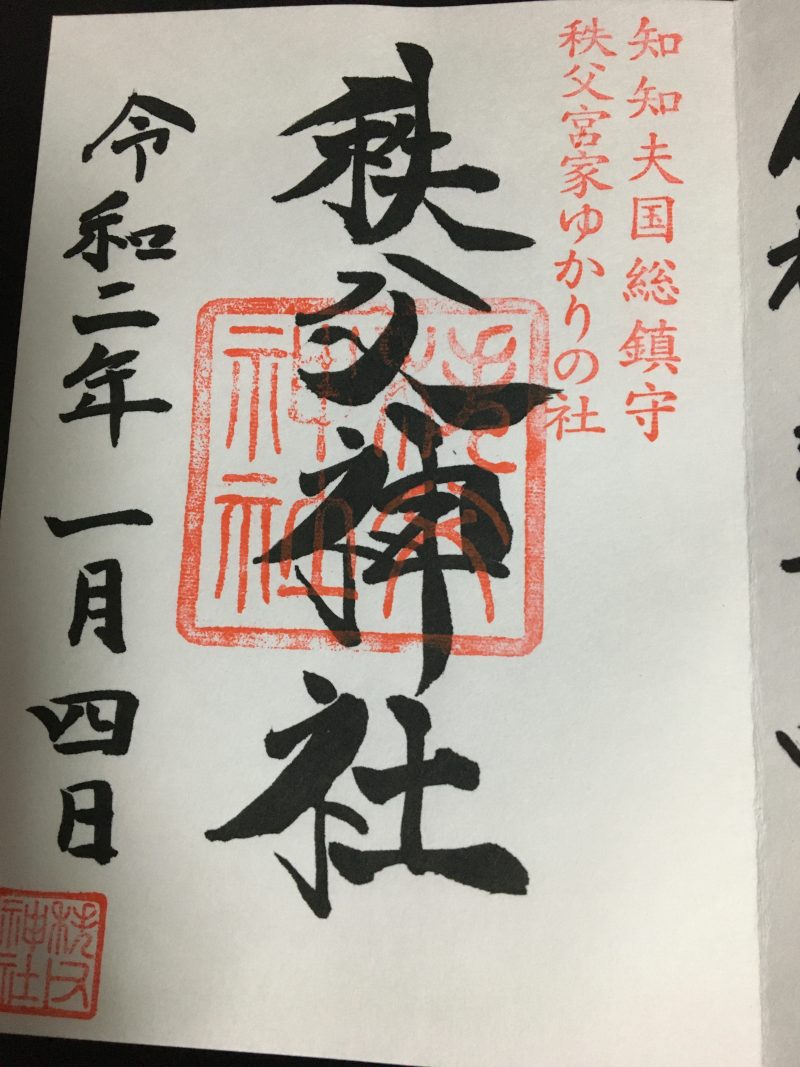 知知夫国総鎮守
秩父宮家ゆかりの社
秩父神社
秩父神社
令和二年一月四日
秩父神社